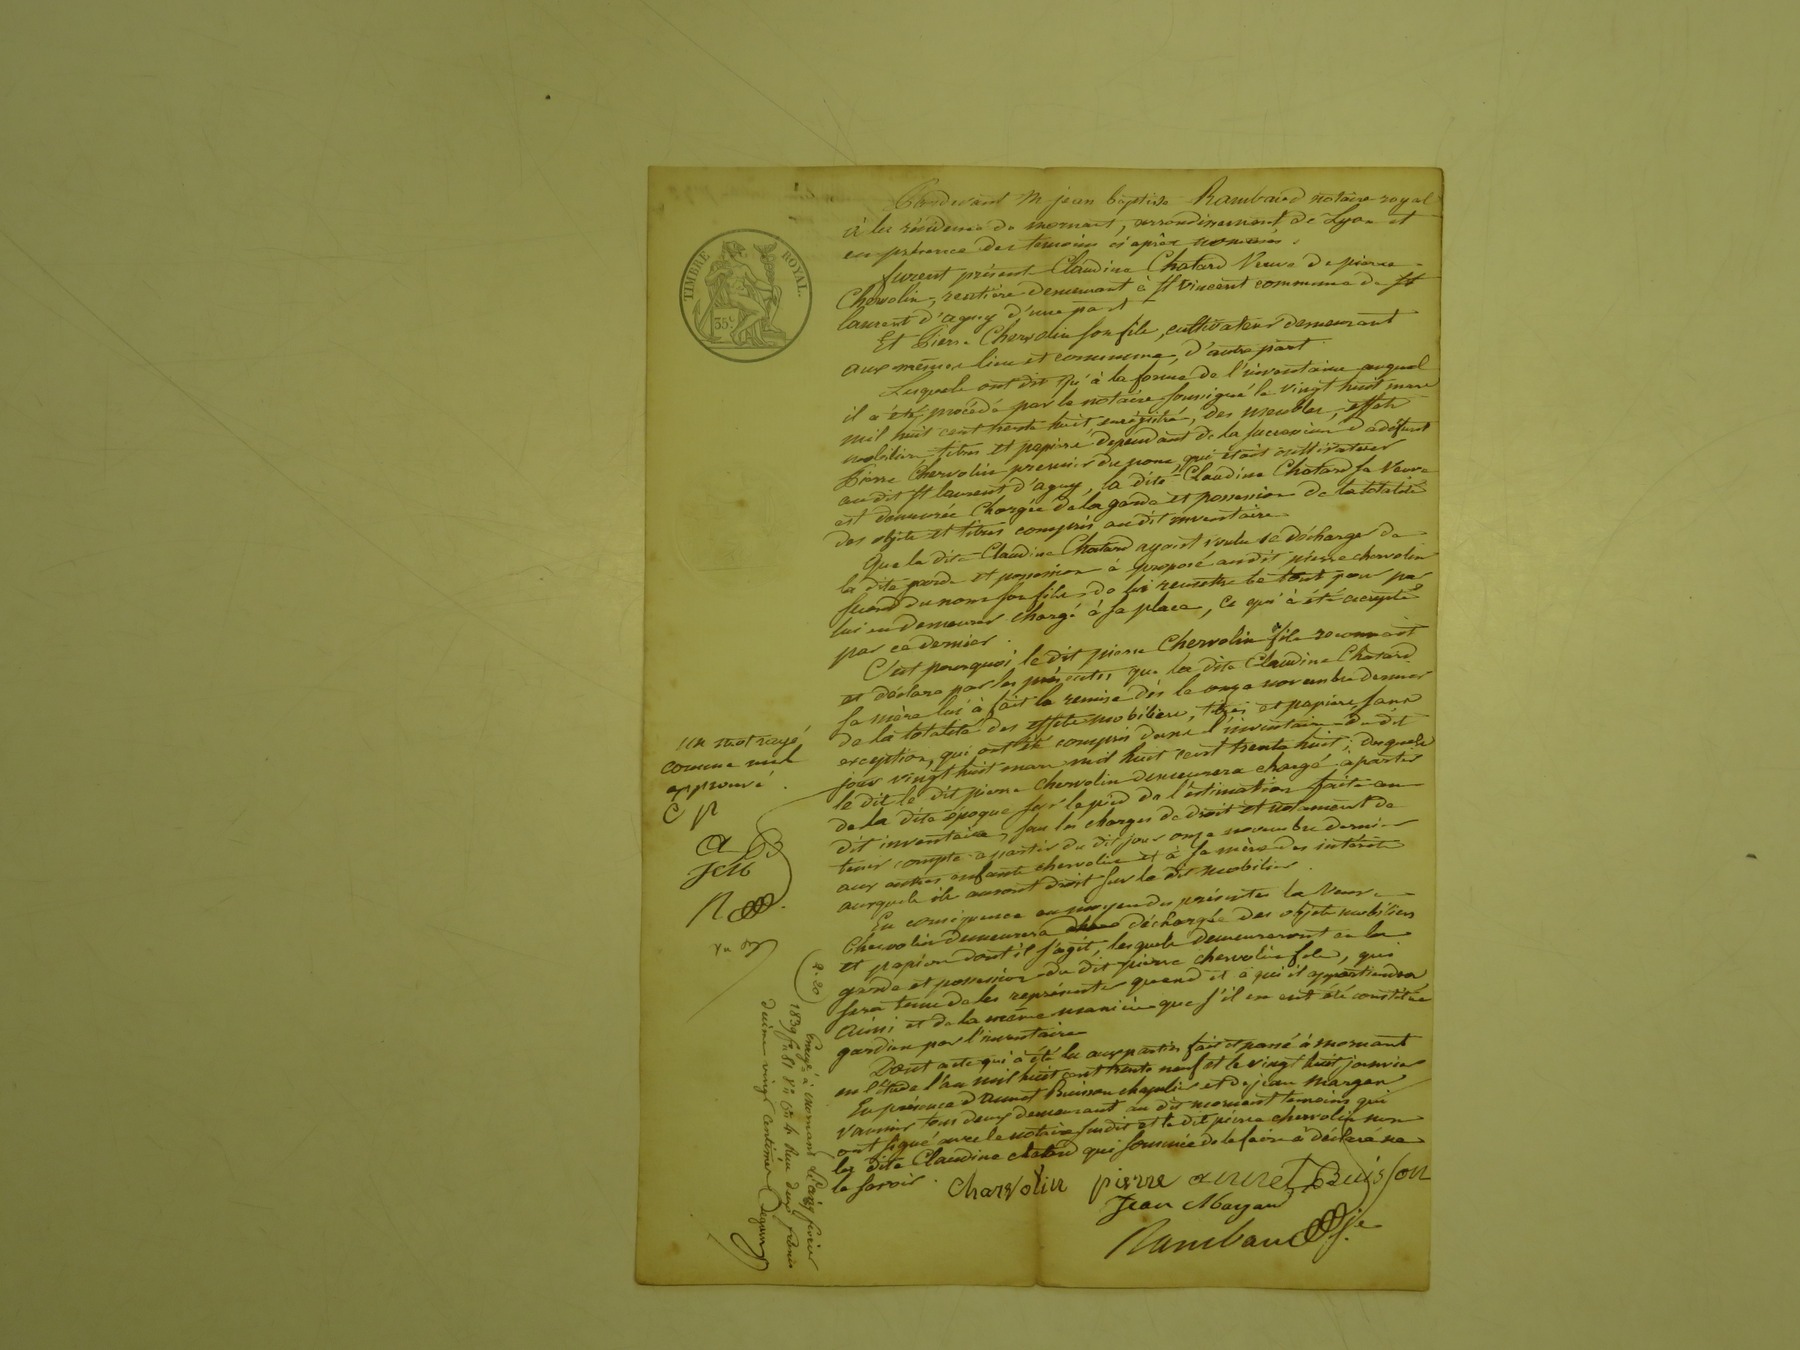 Pardevant Me jean baptiste Rambaud notaire royal
à la résidence de mornant, arrondissement de Lyon et
en présence des temoins ci après nommés.
furent présent Claudine Chatard Veuve de pierre
Chervolin, rentière demeurant à St Vincent commune de St
laurent d'agny d'une part
Et Pierre Chervolin son fils, cultivateur demeurant
aux mêmes lieu et commune, d'autre part.
Lesquels ont dit qu'à la forme de l'inventaire auquel
il a été procédé par le notaire soussigné le vingt huit mars
mil huit cent trente huit enrégistré, des meubles, effets
mobiliers titres et papiers dépendant de la succession dudit défunt
Pierre Chervolin premier du nom, qui était cultivateur
au dit St laurent d'agny, la dite Claudine Chatard sa Veuve
est demeurée Chargée de la garde et possession de la totalité
des objets et titres compris au dit inventaire
Que la dite Claudine Chatard ayant voulu se décharger de
la dite garde et possession à proposé audit pierre chervolin
second du nom son fils de lui remettre le tout pour par
lui en demeurer chargé à sa place, ce qui à été accepté
par ce dernier.
C'est pourquoi le dit pierre Chervolin fils reconnait
et déclare par les présentes que la dite Claudine Chatard
sa mère lui à fait la remise dès le onze novembre dernier
de la totalité des effets mobiliers, titres et papiers sans
exception, qui ont été compris dans l'inventaire du dit
jour vingt huit mars mil huit cent trente huit; desquels
le dit le dit pierre chervolin demeurera chargé apartir
de la dite époque sur le pied de l'estimation faite au
dit inventaire, sous les charges de droit et notament de
tenir compte apartir du dit jour onze novembre dernier
aux autres enfants chervolin et à sa mère des intérêts
auxquels ils auront droit sur le dit mobilier.
En conséquence au moyen des présentes la Veuve
Chervolin demeurera déchargée des objets mobiliers
et papiers dont il s'agit, lesquels demeureront en la
garde et possession du dit pierre chervolin fils, qui
sera tenu de les représenter quand et à qui il appartiendra
ainsi et de la même manière que s'il en eut été constitué
gardien par l'inventaire
Dont acte qui à été lu aux parties fait et passé à mornant
en l'étude l'an mil huit cent trente neuf et le vingt huit janvier
En présence d'annet Buisson chapelier et de jean margan
vannier tous deux demeurant au dit mornant temoins qui
ont signé avec le notaire susdit et le dit pierre chervolin non
la dite Claudine chatard qui sommée de le faire à déclaré ne
le savoir.
Charvolin pierre annet Buisson
Jean Margan
Rambaud
TIMBRE ROYAL.
35c
un mot rayé
comme nul
approuvé.
C p
a B
JM
R
2.20
Enregé à mornant le février
1839 fo 81 Vo Cse 4 Reçu deux francs
dixième vingt centimes